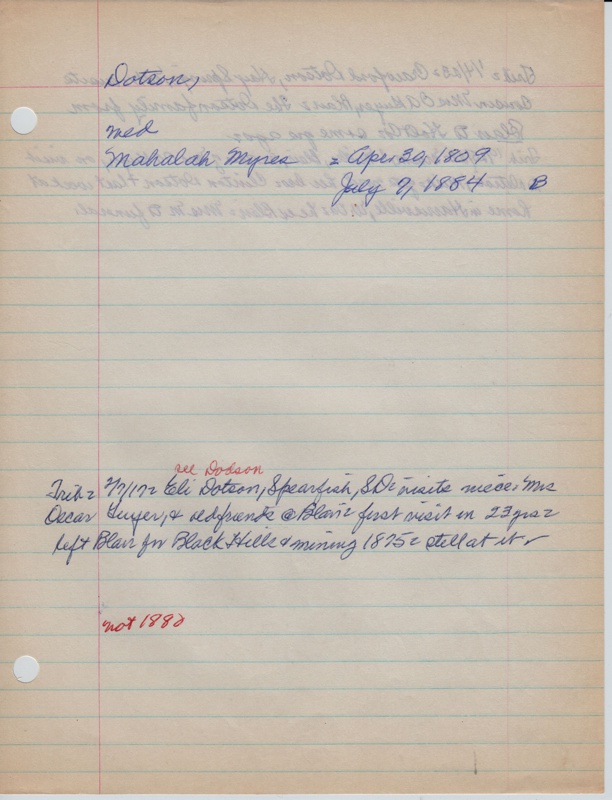 Dotson,
med
Mahalah Myres = Apr 30, 1809
July 7, 1884 B
see Dodson
Trib = 2/7/17 = Eli Dotson, Spearfish, SD = visits niece, Mrs
Oscar Guyer, & old friends @ Blair = first visit in 23 yrs =
left Blair for Black Hills & mining 1875 = still at it
not 1880